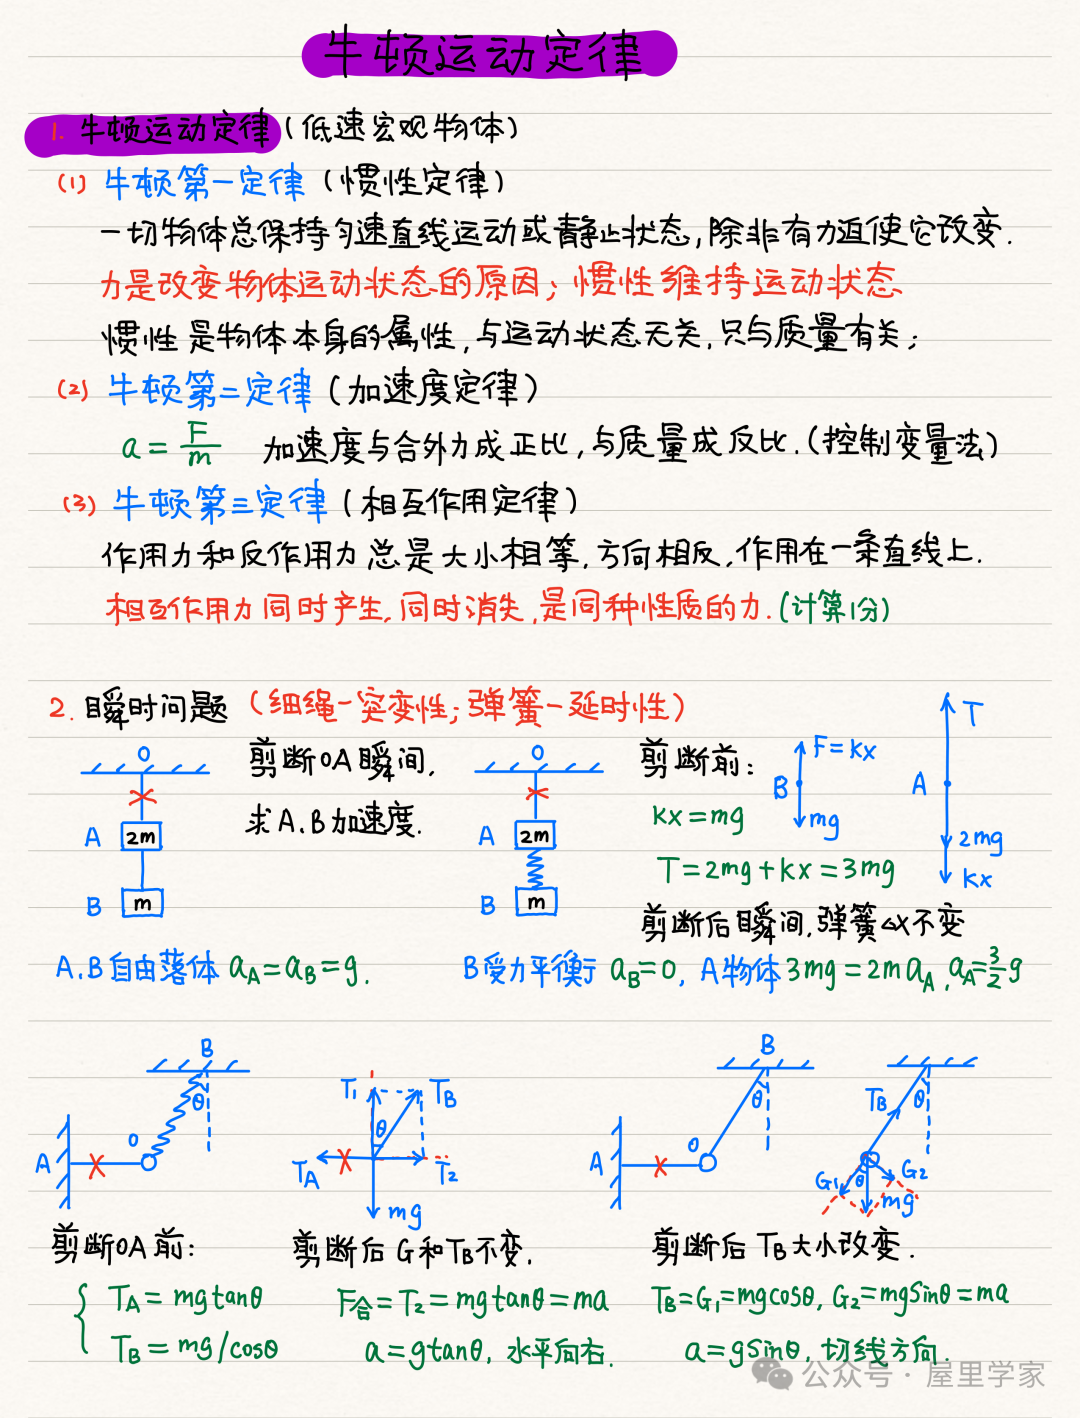 牛顿运动定律
1. 牛顿运动定律(低速宏观物体)
(1) 牛顿第一定律(惯性定律)
一切物体总保持匀速直线运动或静止状态,除非有力迫使它改变.
力是改变物体运动状态的原因;惯性维持运动状态
惯性是物体本身的属性,与运动状态无关,只与质量有关;
(2) 牛顿第二定律(加速度定律)
a = F/m 加速度与合外力成正比,与质量成反比.(控制变量法)
(3) 牛顿第三定律(相互作用定律)
作用力和反作用力总是大小相等,方向相反,作用在一条直线上.
相互作用力同时产生,同时消失,是同种性质的力.(计算1分)
2. 瞬时问题(细绳-突变性;弹簧-延时性)
O
剪断OA瞬间,
求A.B加速度.
A 2m
B m
O
A 2m
B m
剪断前:
kx=mg
F=kx
B
mg
T
A
2mg
kx
T=2mg+kx=3mg
剪断后瞬间,弹簧△x不变
A.B自由落体 aA=aB=g.
B受力平衡 aB=0, A物体 3mg=2maA, aA=3/2g
B
θ
O
A
T1
TB
θ
TA
T2
mg
B
θ
O
A
TB
θ
G1
θ
G2
mg
剪断OA前:
TA=mgtanθ
TB=mg/cosθ
剪断后G和TB不变.
F合=T2=mgtanθ=ma
a=gtanθ, 水平向右.
剪断后TB大小改变.
TB=G1=mgcosθ, G2=mgsinθ=ma
a=gsinθ, 切线方向.
公众号·屋里学家